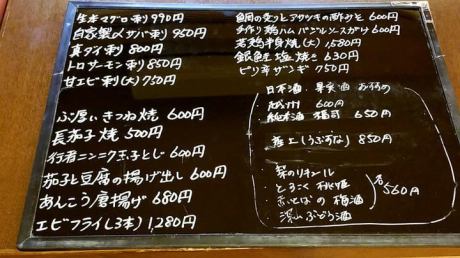 生本マグロ刺 990円
自家製〆サバ刺 950円
真ダイ刺 800円
トロサーモン刺 850円
甘エビ刺(大) 750円
ぶ厚いきつね焼 600円
長茄子焼 500円
行者ニンニク玉子とじ 600円
茄子と豆腐の揚げ出し 600円
あんこう唐揚げ 680円
エビフライ(3本) 1,280円
鯛の皮とアサツキの酢みそ 600円
手作り鶏ハム バジルソースがけ 600円
若鶏半身焼(大) 1,580円
銀鮭塩焼き 630円
ピリ辛ザンギ 750円
日本酒・果実酒
越州 600円
純米酒 650円
産土(うぶすな) 850円
梨のリキュール
とろこく桃姫
梅酒
深山ぶどう酒
各560円